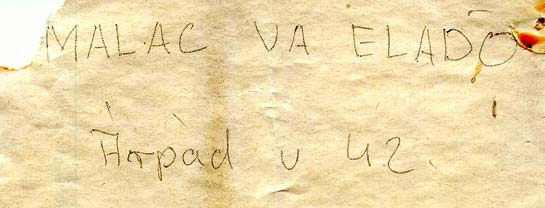 MALAC VA ELADÓ
Árpàd u 42.